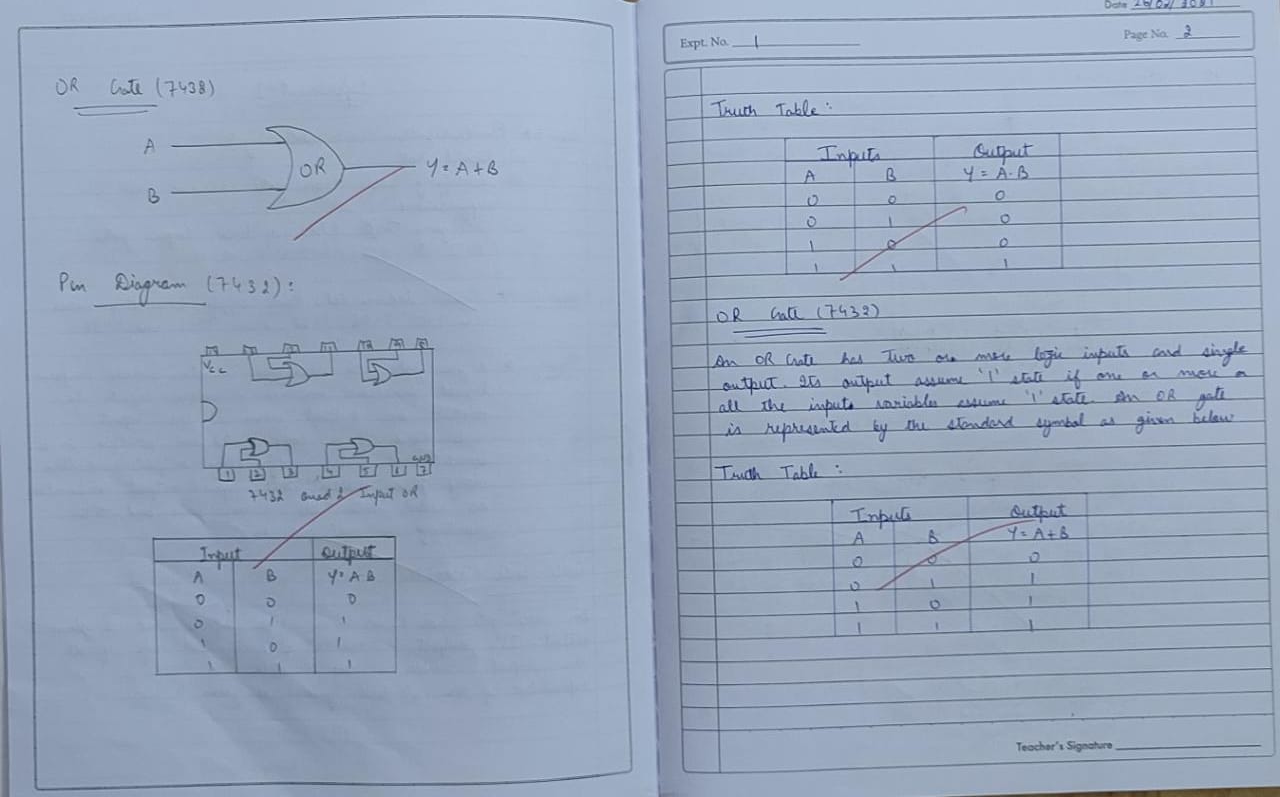 OR Gate (7438)
A
B
OR
Y = A + B
Pin Diagram (7432) :
Vcc
1 2 3 4 5 6 7
7432 quad 2 Input OR
Input Output
A B Y = A B
0 0 0
0 1 1
1 0 1
1 1 1
Expt. No. 1
Page No. 2
Truth Table :
Inputs Output
A B Y = A·B
0 0 0
0 1 0
1 0 0
1 1 1
OR Gate (7432)
An OR Gate has Two or more logic inputs and single
output. Its output assume '1' state if one or more or
all the inputs variables assume '1' state. An OR gate
is represented by the standard symbol as given below
Truth Table :
Inputs Output
A B Y = A + B
0 0 0
0 1 1
1 0 1
1 1 1
Teacher's Signature